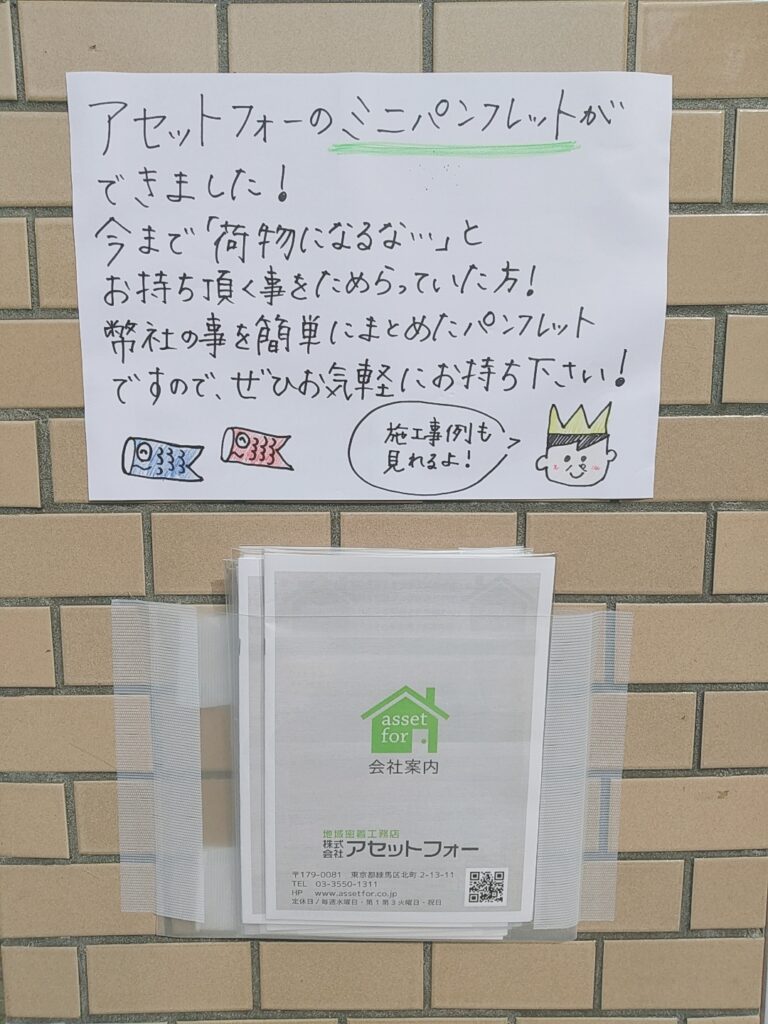 アセットフォーのミニパンフレットが
できました!
今まで「荷物になるな…」と
お持ち頂く事をためらっていた方!
幣社の事を簡単にまとめたパンフレット
ですので、ぜひお気軽にお持ち下さい!
施工事例も
見れるよ!
asset
for
会社案内
地域密着工務店
株式会社 アセットフォー
〒179-0081 東京都練馬区北町 2-13-11
TEL 03-3550-1311
HP www.assetfor.co.jp
定休日/毎週水曜日・第1第3火曜日・祝日